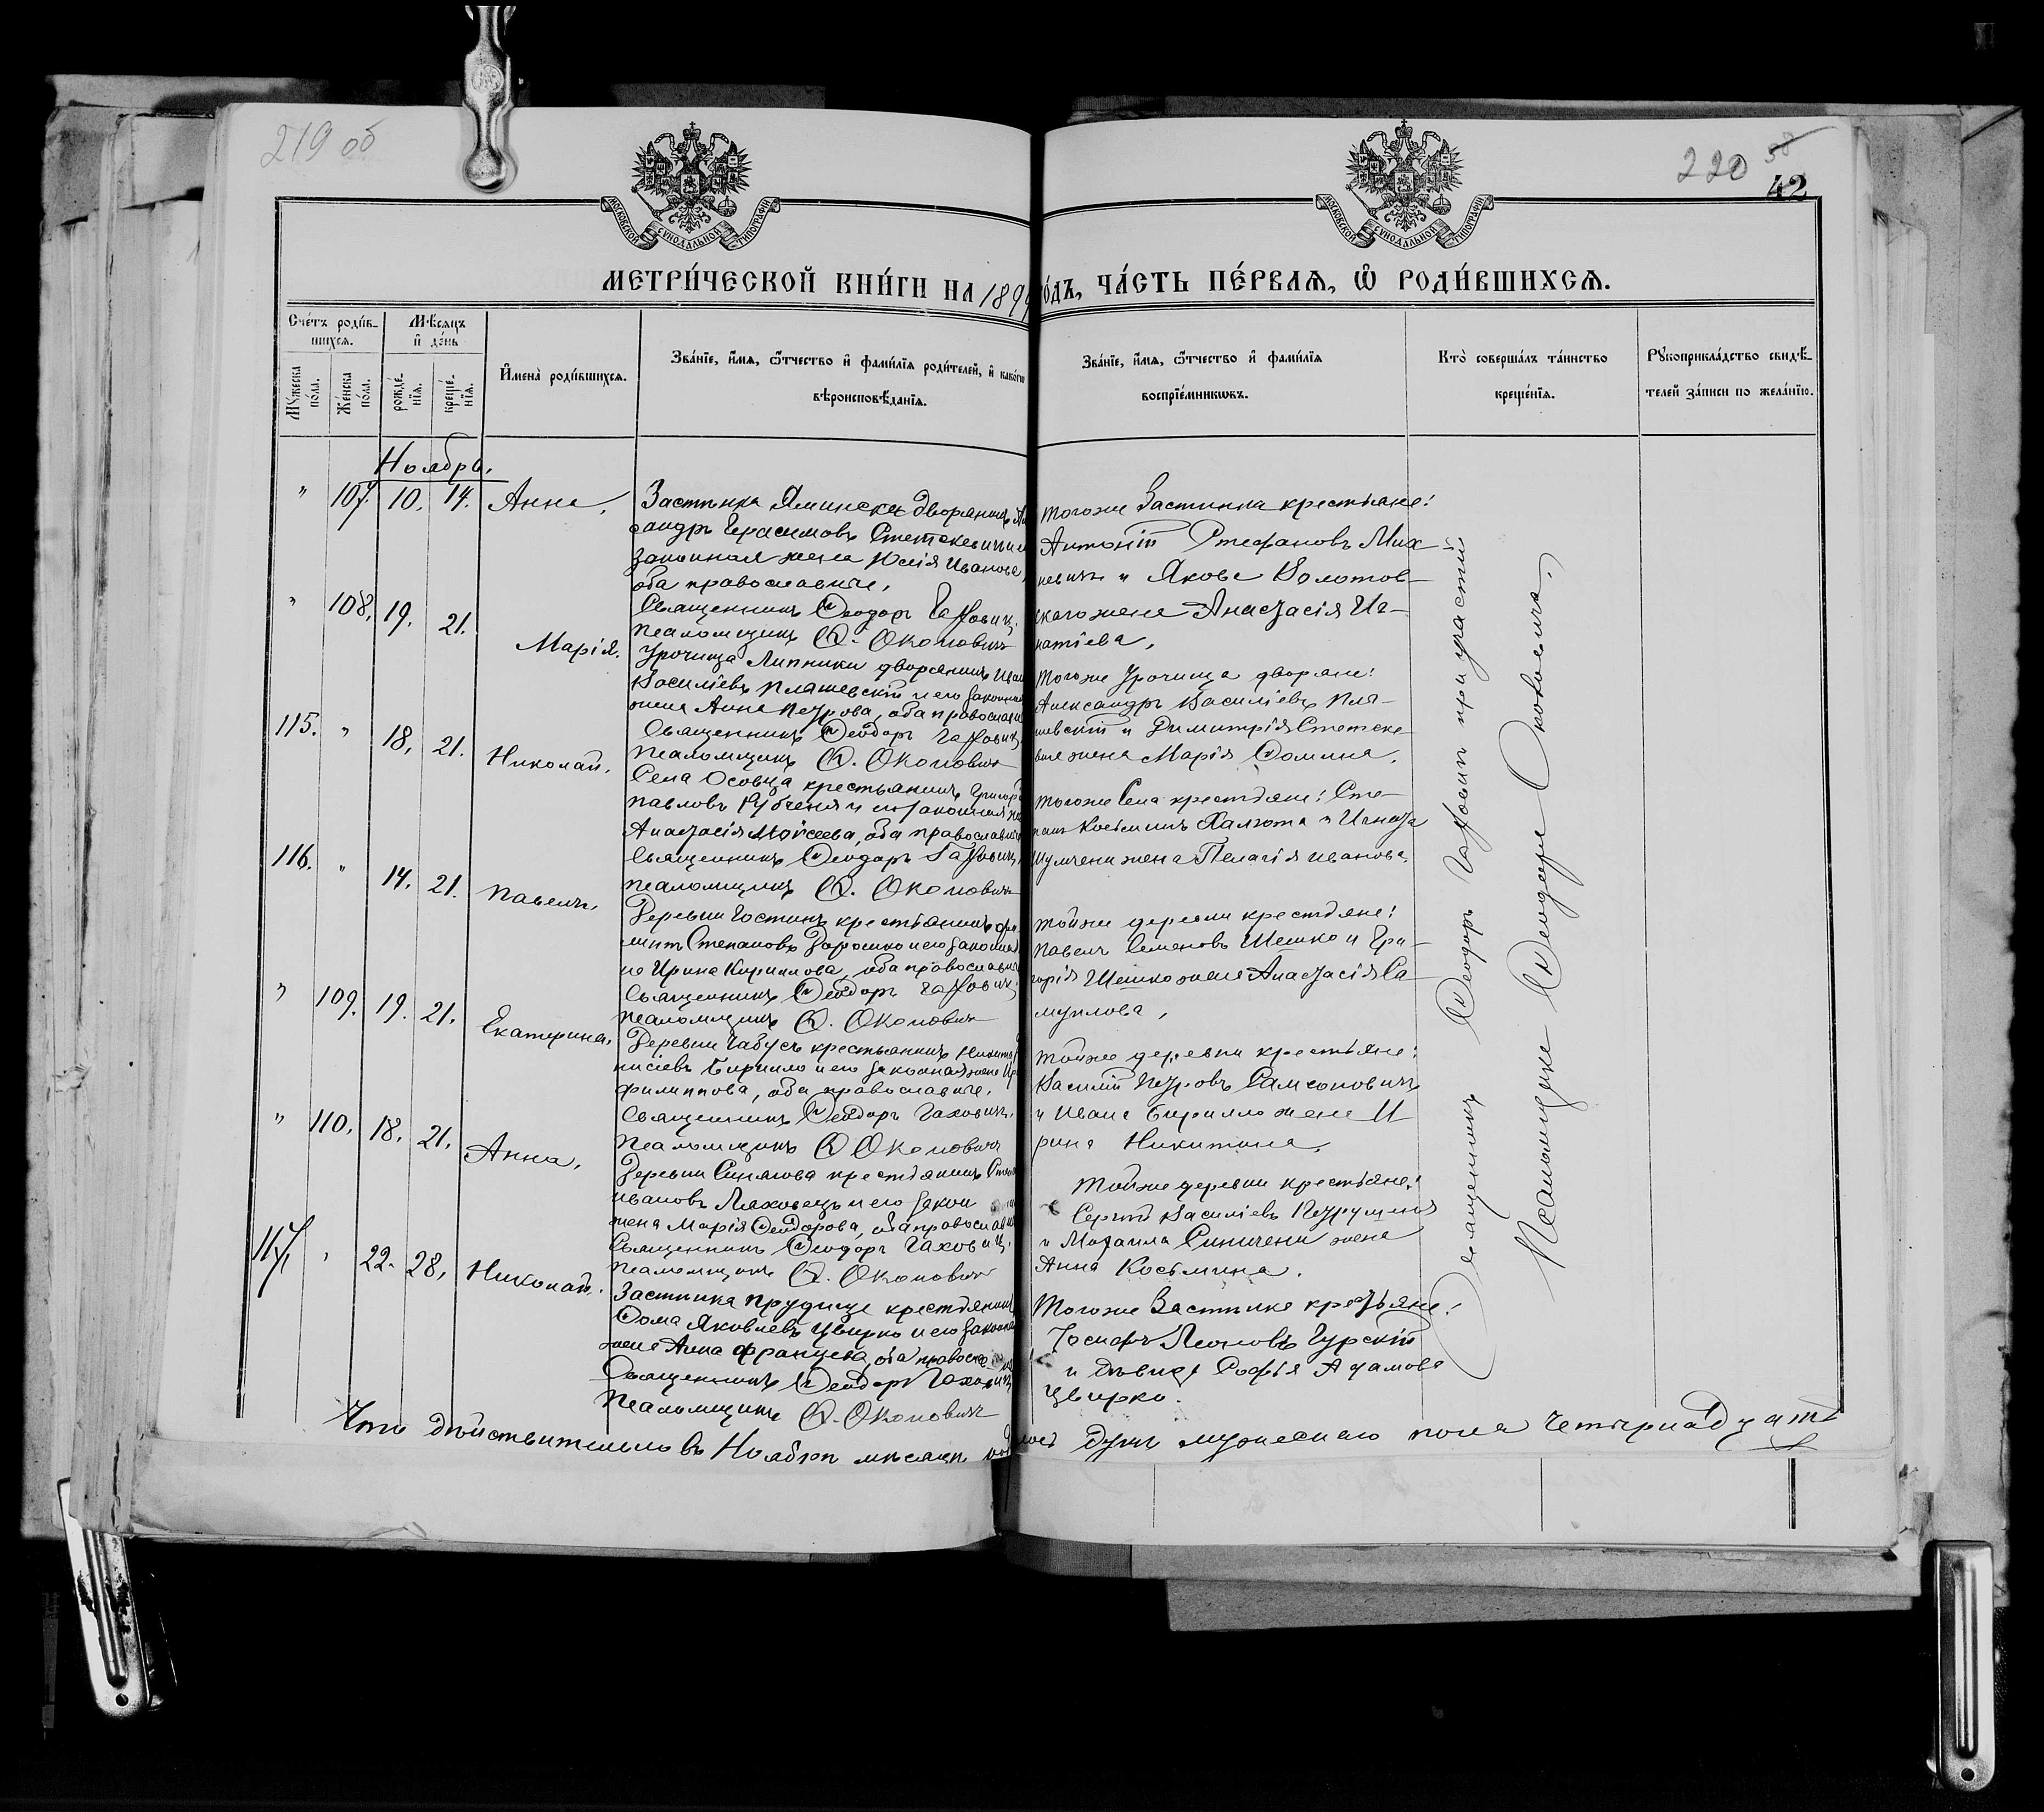 219 об
220
58
42
МОСКОВСКОЙ СѴНОДАЛЬНОЙ ТИПОГРАФІИ
МОСКОВСКОЙ СѴНОДАЛЬНОЙ ТИПОГРАФІИ
МЕТРИ́ЧЕСКОЙ КНИ́ГИ НА 189 ГО́ДЪ, ЧА́СТЬ ПЕ́РВАЯ, Ѡ РОДИ́ВШИХСЯ.
Сче́тъ роди́в-
шихся.
Мꙋжеска по́ла.
Же́нска по́ла.
Мѣ́сяцъ и де́нь
рожде́-
нїя.
креще́-
нїя.
И҆мена̀ роди́вшихся.
Зва́нїе, и҆́мя, ѻ҆́тчество и҆ фами́лїя роди́телей, и҆ како́гѡ
вѣроисповѣ́данїя.
Зва́нїе, и҆́мя, ѻ҆́тчество и҆ фами́лїя
воспрїе́мникѡвъ.
Кто̀ соверша́лъ та́инство
креще́нїя.
Рꙋкоприкла́дство свидѣ́-
телей за́писи по жела́нїю.
Ноябрь.
" 107. 10. 14. Анна,
Застѣнка Яминска дворянинъ
сандръ Герасимовъ Стетскевичъ и
законная жена Юлія Иванова,
оба православные,
Священникъ Ѳеодоръ Гахович
Псаломщикъ Ѳ. Околович
тогоже Застѣнка крестьяне:
Антоній Стефановъ Мих-
невичъ и Якова Болотов-
скаго жена Анастасія Иг-
натіева,
" 108. 19. 21. Марія.
Урочища Липники дворянинъ Иван
Василіевъ Пляшевскій и его законная
жена Анна Петрова, оба православн
Священникъ Ѳеодоръ Гахович
Псаломщикъ Ѳ. Околович
тогоже Урочища дворяне:
Александръ Василіевъ Пля-
шевскій и Димитрія Стетске
вича жена Марія Ѳомина.
115. " 18. 21. Николай.
Села Осовца крестьянинъ Григорій
Павловъ и его законная
Анастасія Моисеева, оба православные
Священникъ Ѳеодоръ Гахович
Псаломщикъ Ѳ. Околович
тогоже Села крестьяне: Сте-
панъ Косьминъ Халюта и Игната
жена Пелагія Иванова.
116. " 14. 21. Павелъ,
Деревни Гостинъ крестьянинъ
Степановъ Дорошко и его законная
на Ирина Кириллова, оба православн
Священникъ Ѳеодоръ Гахович
Псаломщикъ Ѳ. Околович
тойже деревни крестьяне:
Павелъ Семеновъ Шешко и Гри-
горія Шешко жена Анастасія Са-
муилова,
" 109. 19. 21. Екатерина,
Деревни Чабусъ крестьянинъ Никита
нисіевъ Бирилло и его законная жена
Филиппова, оба православные.
Священникъ Ѳеодоръ Гахович.
Псаломщикъ Ѳ Околович
тойже деревни крестьяне:
Василій Петровъ Самсоновичъ
и Ивана Бирилло жена И
рина Никитина.
" 110. 18. 21. Анна,
Деревни крестьянинъ
Ивановъ Ляховецъ и его закон
жена Марія Ѳеодорова, оба православн
Священникъ Ѳеодоръ Гахович
Псаломщикъ Ѳ. Околович
Тойже деревни крестьяне:
Сергій Василіевъ
и Михаила жена
Анна Косьмина.
117. " 22. 28. Николай.
Застѣнка Прудище крестьянинъ
Ѳома Яковлевъ Цвирко и его законная
жена Анна Францева, оба правосл
Священникъ Ѳеодоръ Гахович
Псаломщикъ Ѳ. Околович
Тогоже Застѣнка крестьяне:
Іосифъ Леоновъ Гурскій
и дѣвица Софія Адамова
Цвирко.
Священникъ Ѳеодоръ Гахович при участіи
Псаломщика Ѳеодора Околовича.
Что дѣйствительно въ Ноябрѣ мѣсяцѣ душъ мужескаго пола четырнадцать